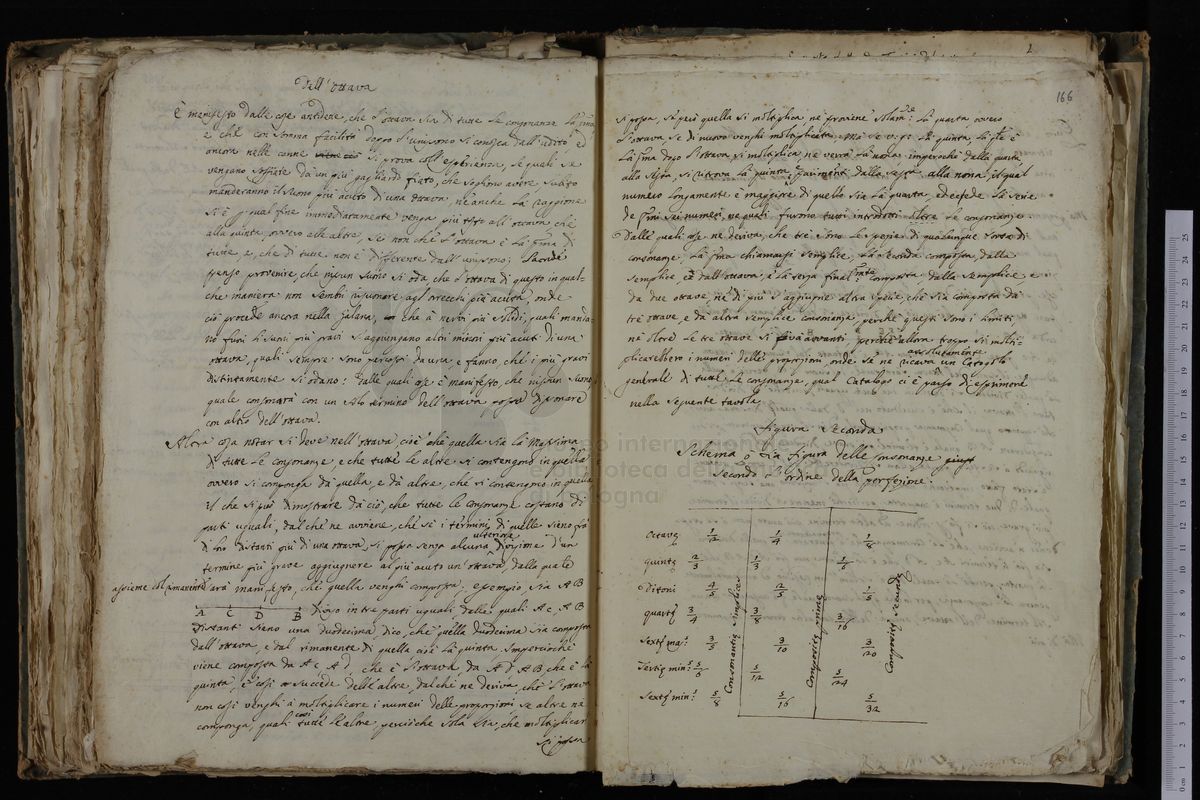 Dell'Ottava
È manifesto dalle cose antidette, che l'ottava sia di tutte le consonanze la p.ma
e che con somma facilità dopo l'unissono si conosca dall'udito e
ancora nelle canne si prova coll'esperienza, le quali se
vengano soffiate da un più gagliardo fiato, che sogliono avere subito
manderanno il suono più acuto di una ottava, ne anche la raggione
si è p qual fine immediatamente venga più tosto all'ottava, che
alla quinta, ovvero alle altre, se non che l'ottava è la p.ma di
tutte, e, che di tutte non è differente dall'unissono;
penso provenire, che nissun suono si oda, che l'ottava di questo in qual-
che maniera non sembri risuonare agl'orecchi più acuta, onde
ciò procede ancora nella che a nervi più solidi, quali manda-
no fuori li suoni più gravi si aggiungano altri minori più acuti di una
ottava, quali sempre sono percossi da una e fanno, che i più gravi
distintamente si odano: dalle quali cose è manifesto, che nissun suono
quale consonarà con un solo termine dell'ottava possa dissonare
con altro dell'ottava.
Altra cosa notar si deve nell'ottava, cioè che quella sia la massima
di tutte le consonanze, e che tutte le altre si contengono in quella
ovvero si componga da quella, e da altre, che si contengono in quella
il che si può dimostrare da ciò, che tutte le consonanze costano di
parti uguali, dal che ne avviene, che se i termini di quelle sieno frà
di loro distanti più di una ottava, si possa senza alcuna ulteriore divisione d'un
termine più grave aggiugnere al più acuto un'ottava, dalla quale
assieme col rimanente sarà manifesto, che quella venghi composta, essempio sia A B
A C D B diviso in tre parti uguali dalle quali A C, A B
distanti sieno una duodecima, dico, che quella duodecima sia composta
dall'ottava, e dal rimanente di quella cioè la quinta, imperciochè
viene composta da A C A D, che è l'ottava da A D A B che è la
quinta, e così succede dell'altre, dal chè ne deriva, che l'ottava
non così venghi à moltiplicare i numeri delle proporzioni se altre ne
componga, quali così tutte l'altre perciochè sola sia, che moltiplicar
si possa
166
si possa, se però quella si moltiplica ne proviene solam.te la quarta ovvero
l'ottava, se di nuovo venghi moltiplicata, Ma se v. g. la quinta, la q.le è
la p.ma dopo l'ottava si moltiplica ne verrà la nona; imperochè dalla quarta
alla sesta, si ritrova la quinta, e parimenti dalla sesta alla nona, il qual
numero longamente è maggiore di quello sia la quarta, ed eccede la serie
de p.mi sei numeri, ne quali furono tutti introdotti oltre le consonanze.
Dalle quali cose ne deriva, che tre sono le spezie di qualunque sorta di
consonanze, la p.ma chiamasi semplice, la seconda composta, dalla
semplice, e dall'ottava; e la terza final.mte composta, dalla semplice, e
da due ottave, ne di più s'aggiugne altra spezie, che sia composta da
trè ottave, e da altra semplice consonanza, perchè questi sono i limiti
ne oltre le tre ottave si và avanti perchè allora troppo si molti-
plicarebbero i numeri delle proporzioni, onde se ne ricava assolutamente un Catalogo
generale di tutte le consonanze, qual Catalogo ci è parso di esprimere
nella seguente tavola
figura seconda
Schema o sia figura delle consonanze
secondo l'ordine della porfezione:
Octavę 1/2 1/4 1/8
quintę 2/3 1/3 1/6
Ditoni 4/5 2/5 1/5
quartę 3/4 3/8 3/16
Sextę maj: 3/5 3/10 3/20
Tertię min: 5/6 5/12 5/24
Sextę min: 5/8 5/16 5/32
Consonantię simplices
Compositę primę
Compositę secundę
museo internazionale
e biblioteca della musica
di bologna